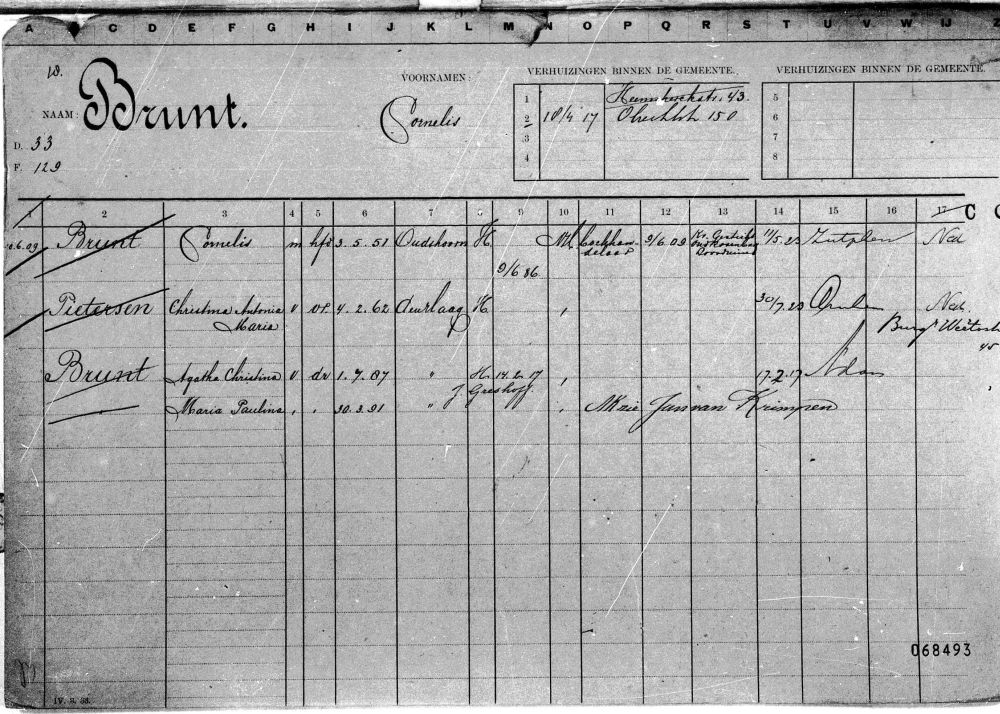 A B C D E F G H I J K L M N O P Q R S T U V W IJ Z
NAAM: Brunt.
VOORNAMEN: Cornelis
D. 33
F. 129
VERHUIZINGEN BINNEN DE GEMEENTE.
1 Heemskerckstr. 43.
2 10/4 17 Obrechtstr 150
3
4
VERHUIZINGEN BINNEN DE GEMEENTE.
5
6
7
8
1 2 3 4 5 6 7 8 9 10 11 12 13 14 15 16 17 C
.6.09 Brunt Cornelis m hfd 3.5.51 Oudshoorn H NH 9/6 09 11/5.23 Zutphen Ned
9/6 86
Pietersen Christina Antonia v 4.2.62 H 30/7.23 Ned
Maria
45
Brunt Agatha Christina v dr 1.7.87 " H. 14.2.17 17.2.17 Adam
J. Greshoff
Maria Paulina 30.3.91 " Jan van Krimpen
068493
IV. S. 33.